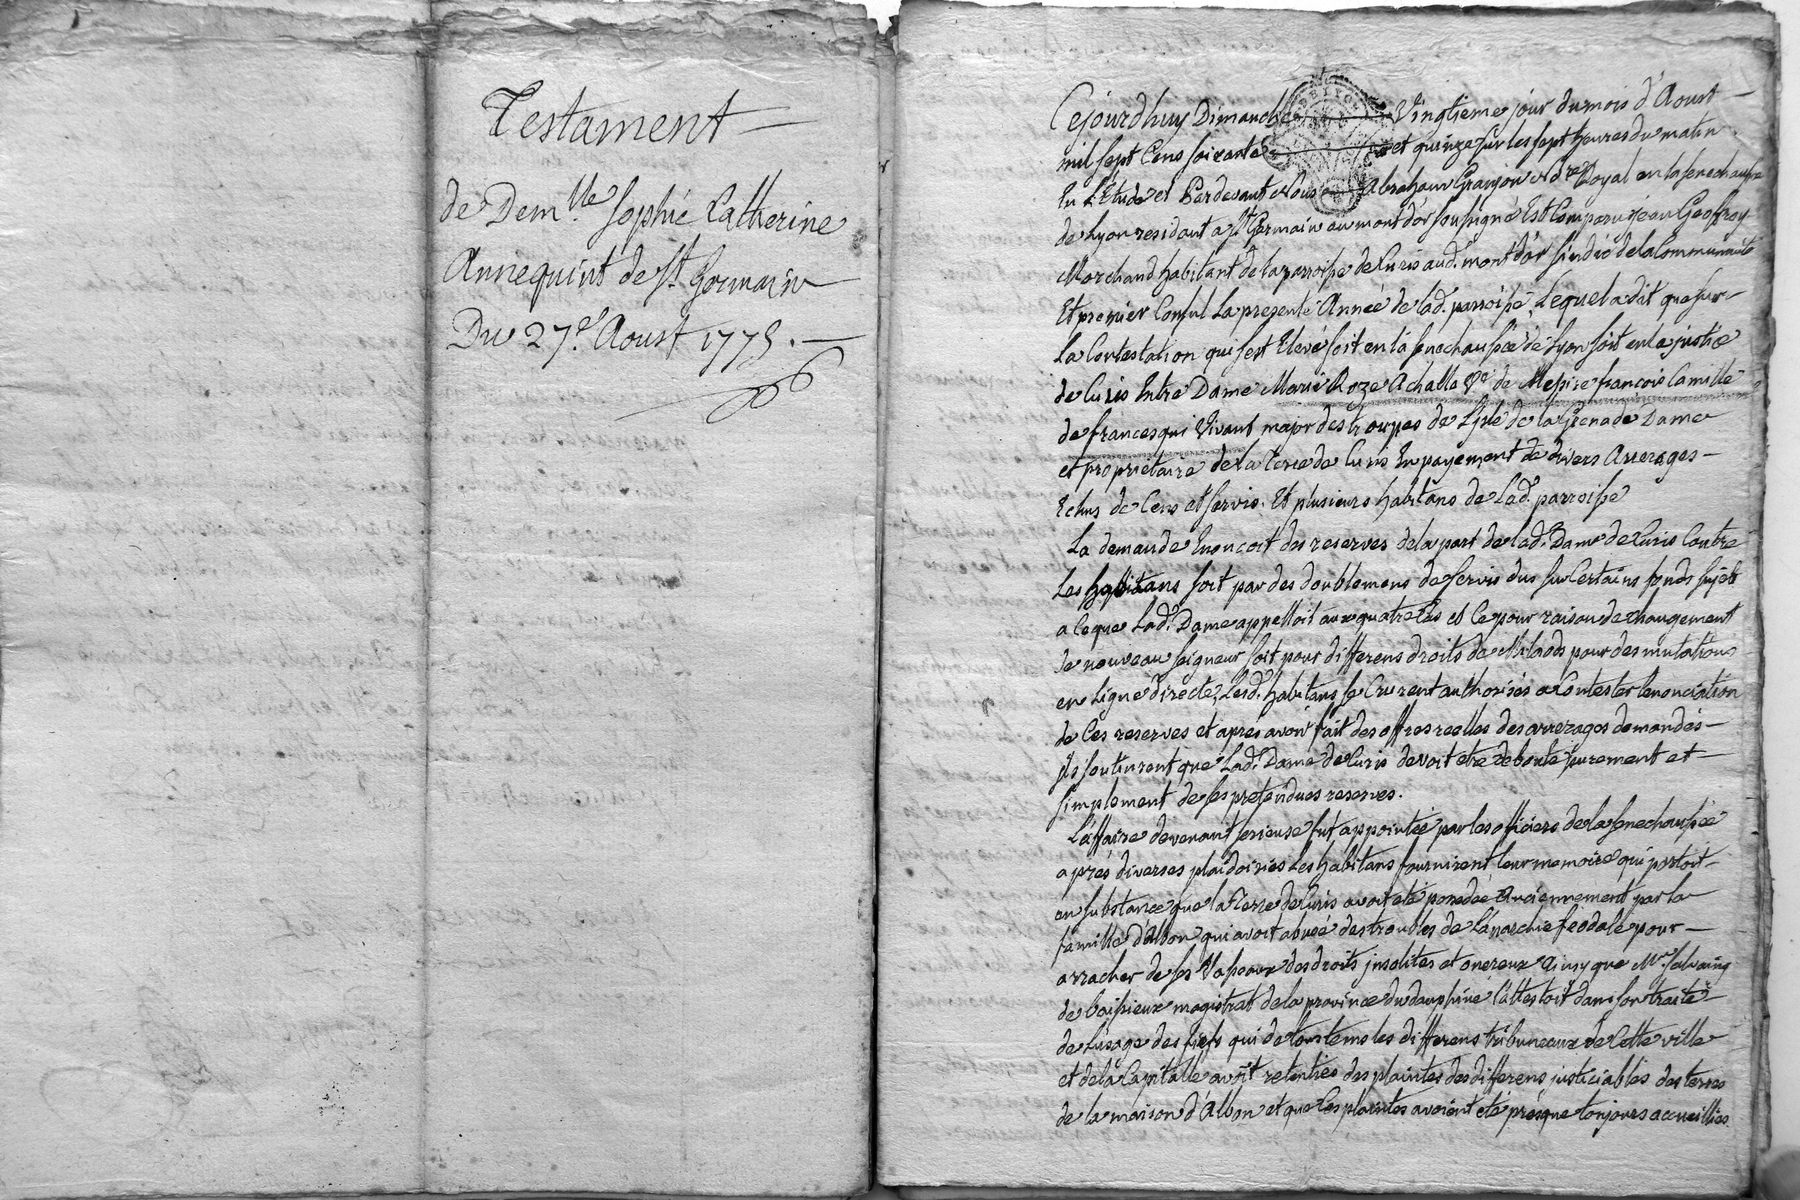 Testament
de Dem.lle Sophie Catherine
Annequint de St. Germain
Du 27e. Aoust 1775.
Cejourdhuy Dimanche Vingtieme jour du mois d'Aoust
mil sept Cens soixante et quinze sur les sept heures du matin
En L'Etude et Pardevant Nous Abraham Grangon Nore. Royal en la senechaussée
de Lyon residant a St Germain au mont d'or soussigné Est Comparu jean Geoffroy
Marchand habitant de la parroisse de Curis aud. mont d'or sindic de la Communauté
Et premier Consul La presente Année de lad. parroisse, Lequel a dit que sur
La Contestation qui s'est Elevé soit en la senechaussée de Lyon soit en la justice
de Curis Entre Dame Marie Roze Achalla Ve. de Messire francois Camille
de francesqui Vivant major des troupes de L'jsle de la Grenade Dame
et propriétaire de la Terre de Curis En payement de divers Arrerages
Echus de Cens et servis. Et plusieurs habitans de Lad. parroisse
La demande Enoncoit des reserves de la part de lad. Dame de Curis Contre
Les habitans soit par des doublemens de servis dus sur Certains fonds sujets
a ce que Lad. Dame appelloit aux quatre Cas et Ce pour raison de changement
de nouveau seigneur soit pour differens droits de Milaods pour des mutations
en Ligne directe, Lesd. habitans se Crurent authorisés a Contester lenonciation
de Ces reserves et après avoir fait des offres reelles des arrerages demandés
jls soutinrent que Lad. Dame de Curis devoit etre deboutée purement et
simplement de ses pretendues reserves.
L'affaire devenant serieuse fut appointée par les officiers de la senechaussée
après diverses plaidoiries Les habitans fournirent leur memoire qui portoit
en substance que la Terre de Curis avoit eté possedée Anciennement par la
famille d'Albon qui avoit abusé des troubles de L'anarchie feodale pour
arracher de ses Vasseaux des droits jnsolites et onereux Ainsy que Mr. Salvaing
de boissieux magistrat de la province du dauphiné l'attestoit dans son traité
de L'usage des fiefs qui de tous tems les differens tribuneaux de Cette ville
et de la Capitalle avoit retenties des plaintes des differens justiciables des terres
de la maison d'Albon et que Ces plaintes avoient eté presque toujours accueillies